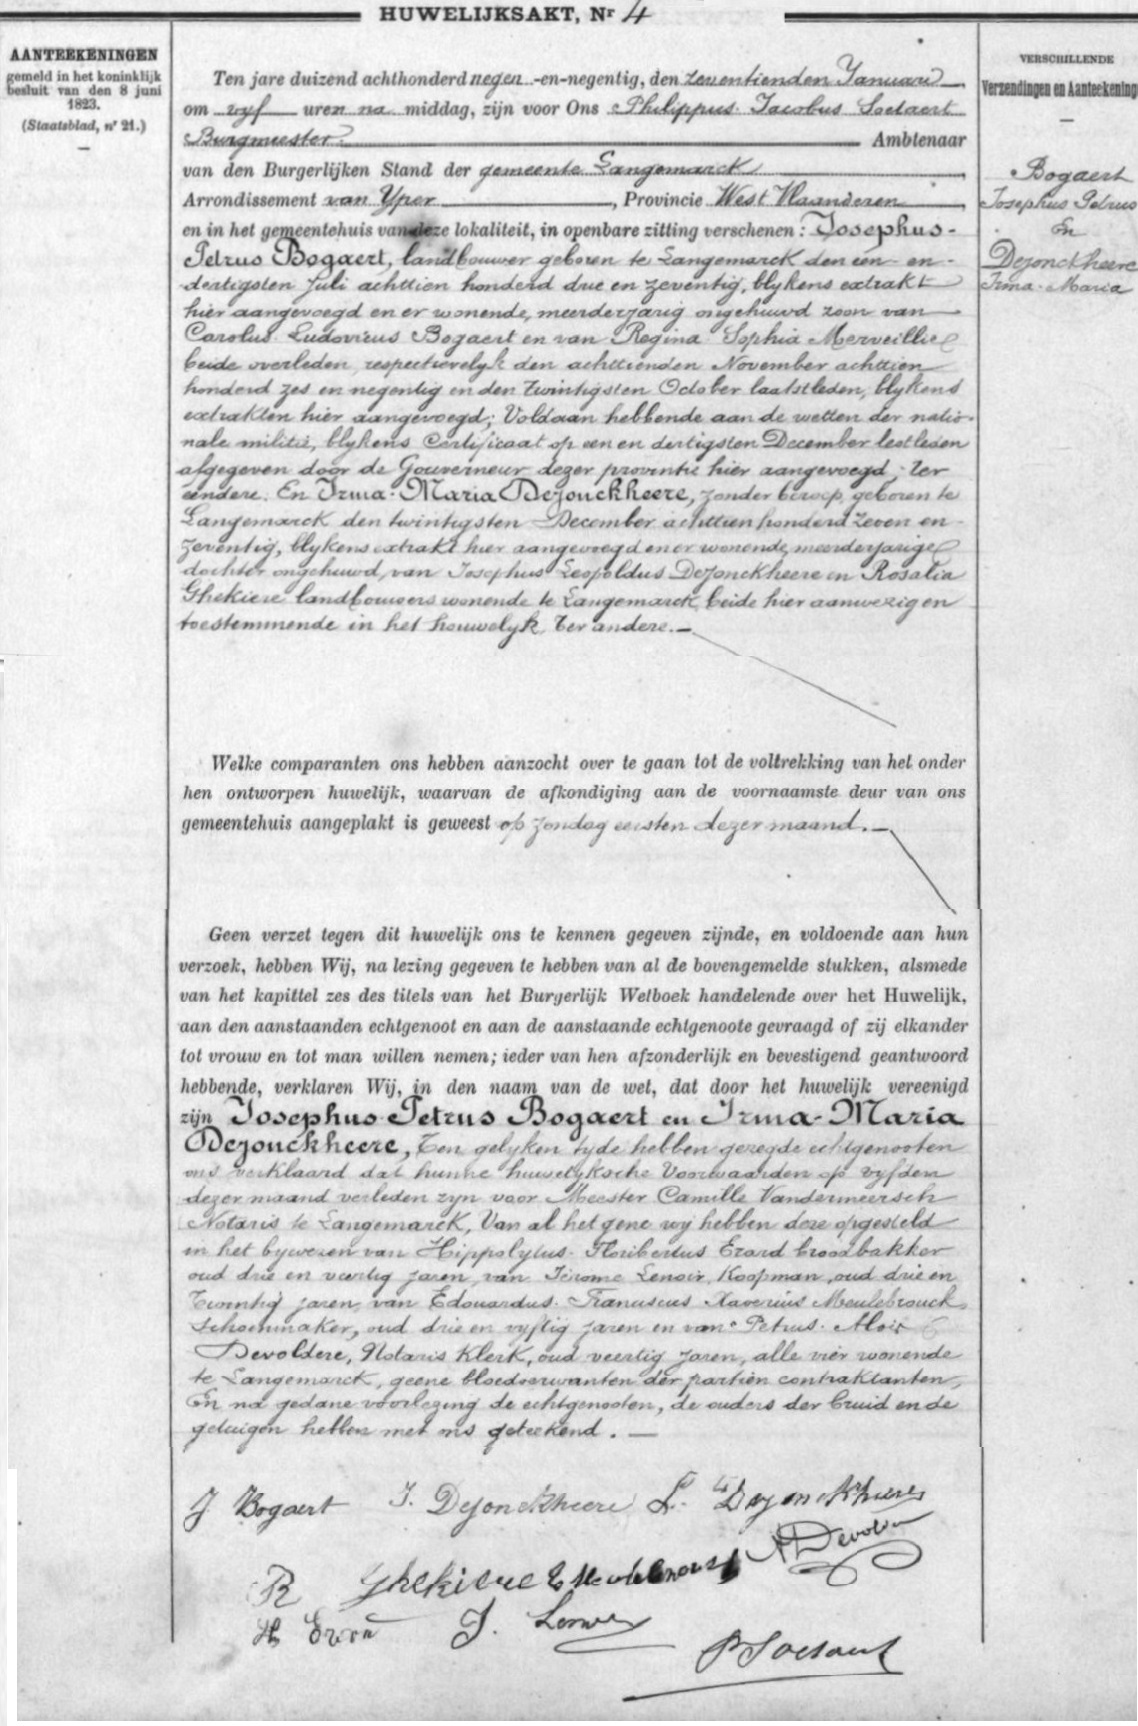 HUWELIJKSAKT, Nr 4
AANTEEKENINGEN
gemeld in het koninklijk
besluit van den 8 juni
1823.
(Staatsblad, nr 21.)
Ten jare duizend achthonderd negen -en-negentig, den zeventienden Januari
om vyf uren na middag, zijn voor Ons Philippus Jacobus Soetaert
Burgmeester Ambtenaar
van den Burgerlijken Stand der gemeente Langemarck
Arrondissement van Yper, Provincie West Vlaanderen,
en in het gemeentehuis van deze lokaliteit, in openbare zitting verschenen : Josephus-
Petrus Bogaert, landbouwer geboren te Langemarck den een- en-
dertigsten Juli achttien honderd drie en zeventig, blykens extrakt
hier aangevoegd en er wonende, meerderjarig ongehuwd zoon van
Carolus Ludovicus Bogaert en van Regina Sophia Merveillie
beide overleden, respectievelyk den achttienden November achttien
honderd zes en negentig en den twintigsten October laatstleden, blykens
extrakten hier aangevoegd; Voldaan hebbende aan de wetten der natio-
nale militie, blykens Certificaat op een en dertigsten December lestleden
afgegeven door de Gouverneur dezer provintie hier aangevoegd; ter
eendere. En Irma-Maria Dejonckheere, zonder beroep, geboren te
Langemarck den twintigsten December achttien honderd zeven en
zeventig, blykens extrakt hier aangevoegd en er wonende, meerderjarige
dochter ongehuwd, van Josephus Leopoldus Dejonckheere en Rosalia
Ghekiere landbouwers wonende te Langemarck, beide hier aanwezig en
toestemmende in het houwelyk. Ter andere.
Welke comparanten ons hebben aanzocht over te gaan tot de voltrekking van het onder
hen ontworpen huwelijk, waarvan de afkondiging aan de voornaamste deur van ons
gemeentehuis aangeplakt is geweest op zondag eersten dezer maand.
Geen verzet tegen dit huwelijk ons te kennen gegeven zijnde, en voldoende aan hun
verzoek, hebben Wij, na lezing gegeven te hebben van al de bovengemelde stukken, alsmede
van het kapittel zes des titels van het Burgerlijk Wetboek handelende over het Huwelijk,
aan den aanstaanden echtgenoot en aan de aanstaande echtgenoote gevraagd of zij elkander
tot vrouw en tot man willen nemen; ieder van hen afzonderlijk en bevestigend geantwoord
hebbende, verklaren Wij, in den naam van de wet, dat door het huwelijk vereenigd
zijn Josephus Petrus Bogaert en Irma-Maria
Dejonckheere, Ten gelyken tyde hebben gezegde echtgenooten
ons verklaard dat hunne huwelyksche Voorwaarden op vyfden
dezer maand verleden zyn voor Meester Camille Vandermeersch
Notaris te Langemarck, Van al het gene wy hebben deze opgesteld
in het bywezen van Hippolytus Floribertus Erard broodbakker
oud drie en veertig jaren, van Jérome Lenoir, Koopman, oud drie en
twintig jaren, van Edouardus Franciscus Xaverius Meulebrouck
schoenmaker, oud drie en vyftig jaren en van Petrus Alois
Devoldere, Notaris Klerk, oud veertig jaren, alle vier wonende
te Langemarck, geene bloedverwanten der partien contraktanten,
En na gedane voorlezing de echtgenooten, de ouders der bruid en de
getuigen hebben met ons geteekend.
J Bogaert I. Dejonckheere L. Dejonckheere
R Ghekiere E Meulebrouck A Devolder
H Erard J. Lenoir
P Soetaert
VERSCHILLENDE
Verzendingen en Aanteekening
Bogaert
Josephus Petrus
En
Dejonckheere
Irma-Maria